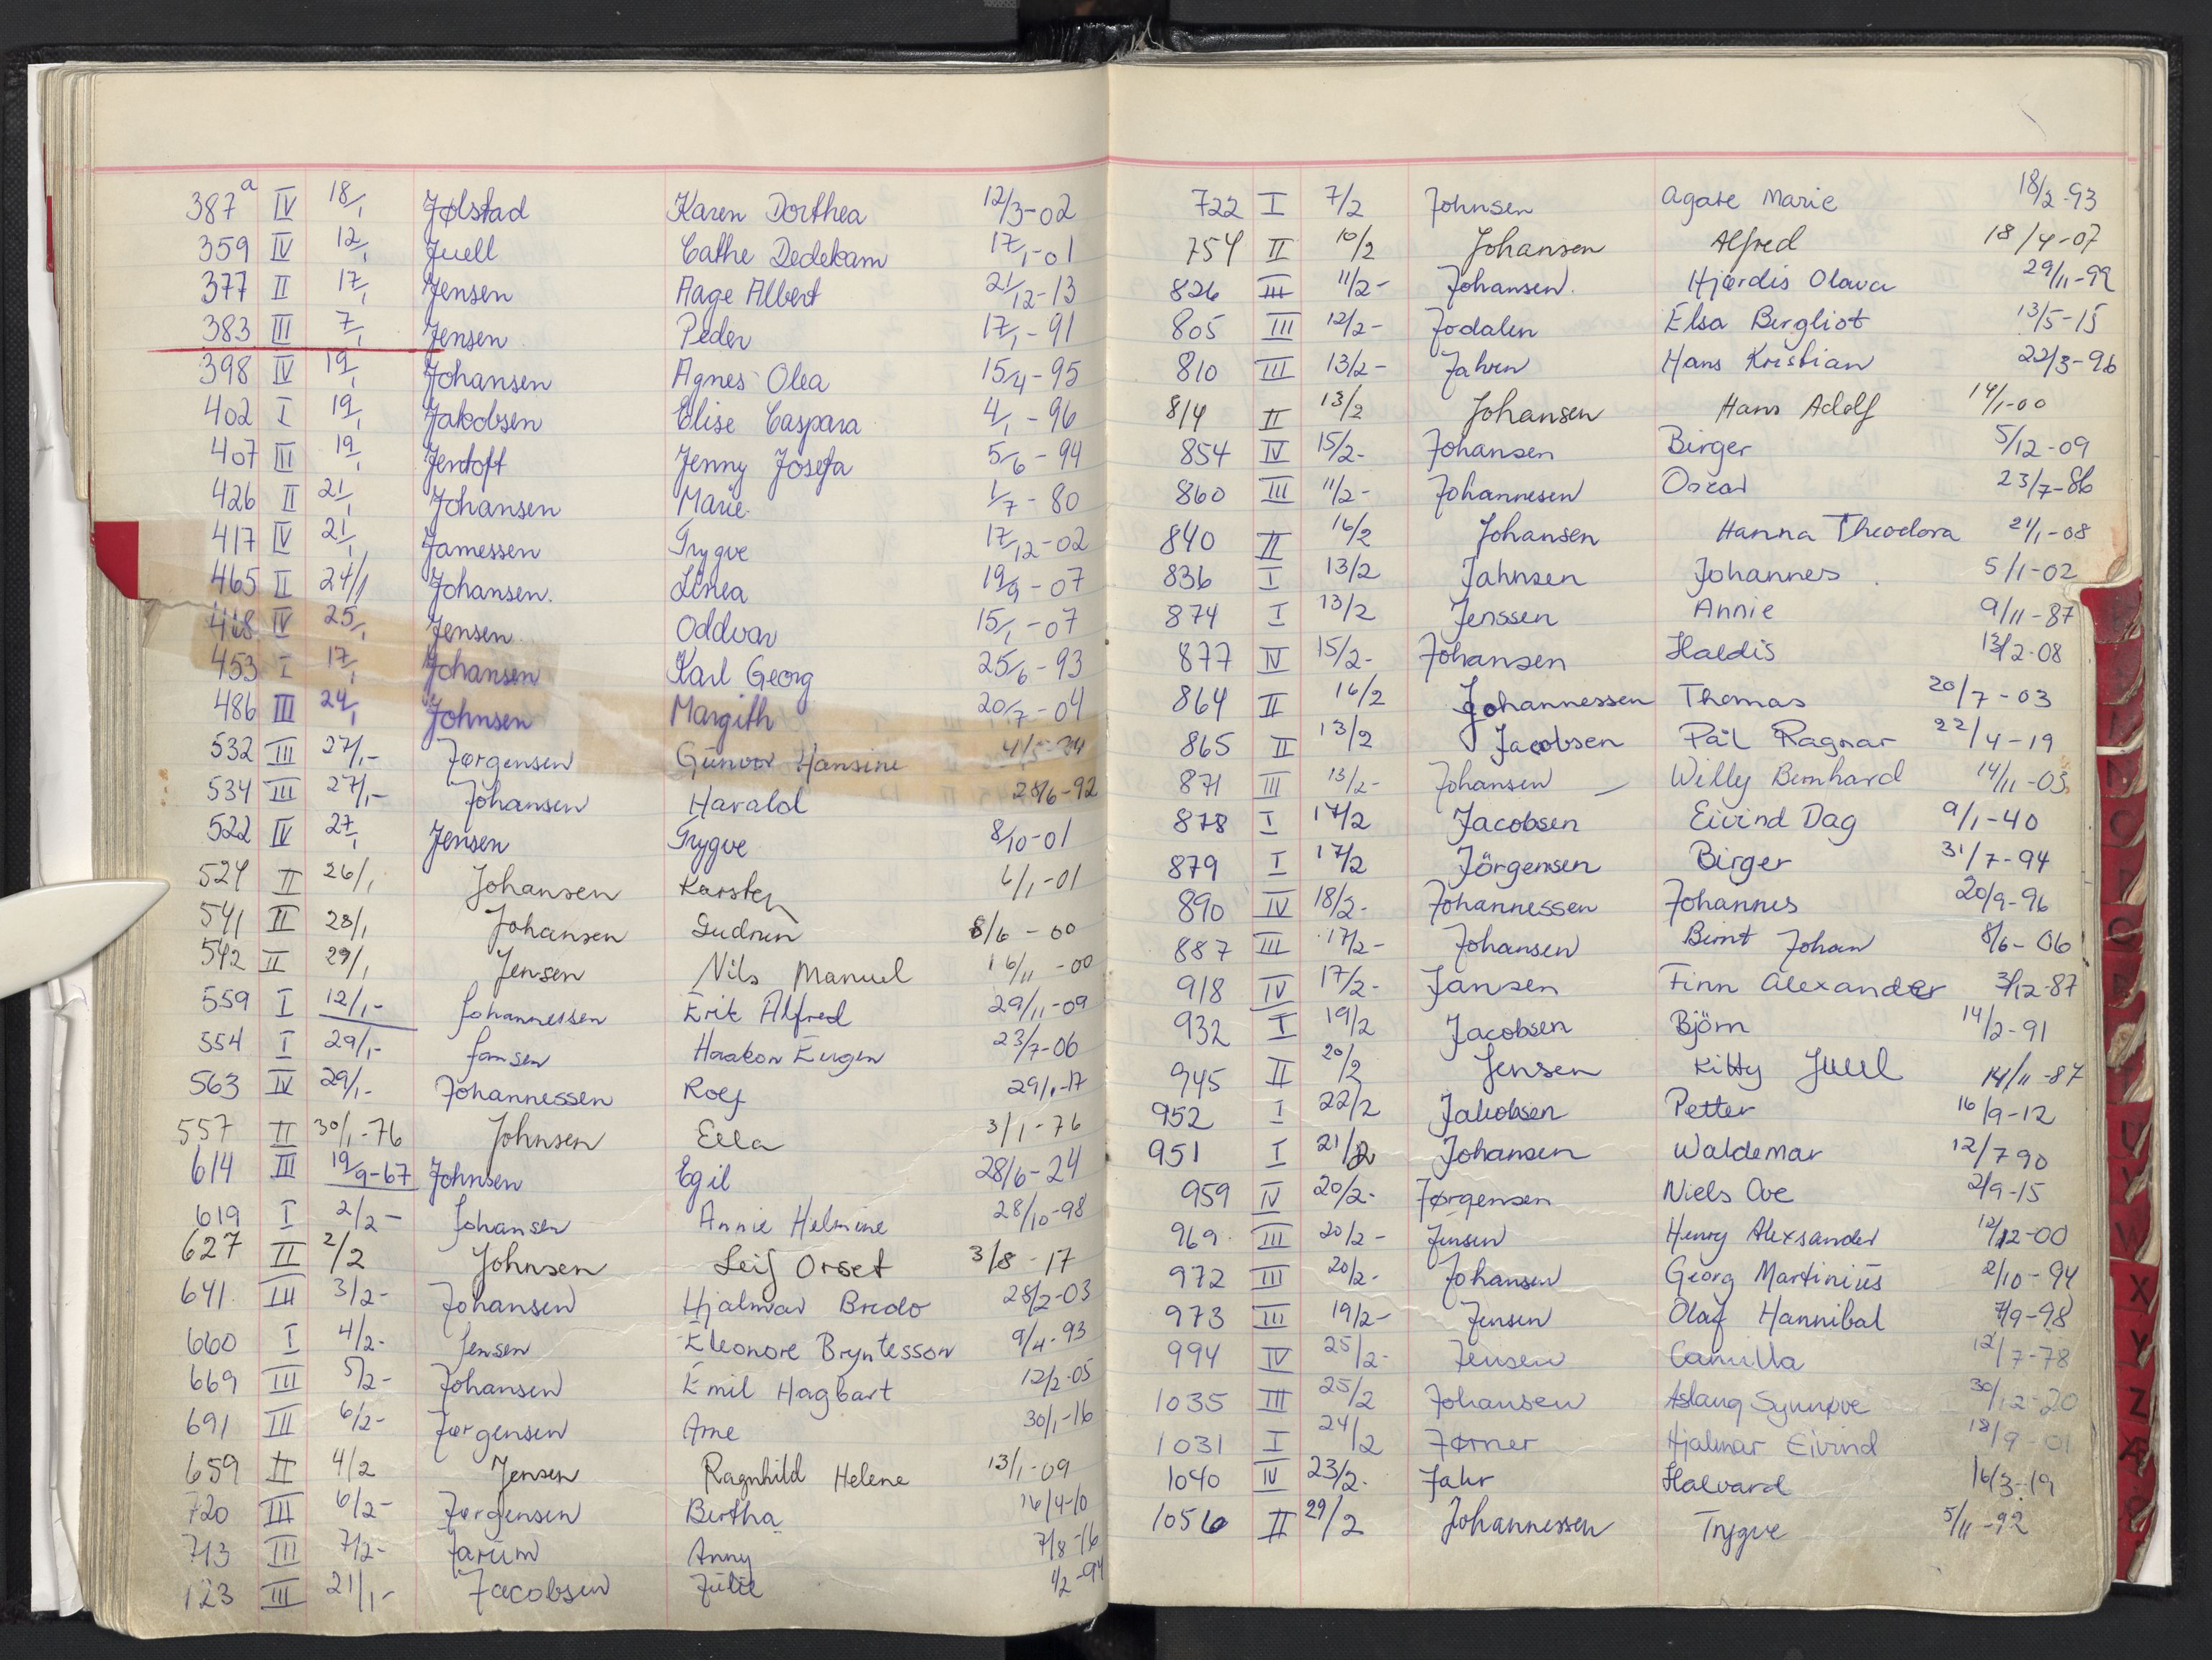 387a IV 18/1 Jølstad Karen Dorthea 12/3-02
359 IV 12/1 Juell Cathe Dedekam 17/1-01
377 II 17/1 Jensen Aage Albert 21/12-13
383 III 7/1 Jensen Peder 17/1-91
398 IV 19/1 Johansen Agnes Olea 15/4-95
402 I 19/1 Jakobsen Elise Caspara 4/1-96
407 III 19/1 Jentoft Jenny Josefa 5/6-94
426 II 21/1 Johansen Marie 1/7-80
417 IV 21/1 Jamessen Trygve 17/12-02
465 II 24/1 Johansen. Linea 19/9-07
IV 25/1 Jensen Oddvar 15/1-07
453 I 17/1 Johansen Karl Georg 25/6-93
486 III 24/1 Johnsen Margith 20/7-04
532 III 27/1- Jørgensen Gunvor Hansine
534 III 27/1- Johansen Harald 28/6-92
522 IV 27/1 Jensen Trygve 8/10-01
524 II 26/1 Johansen Karsten 6/1-01
541 II 28/1 Johansen Gudrun 8/6-00
542 II 29/1 Jensen Nils Manuel 16/11-00
559 I 12/1- Johannessen Erik Alfred 29/11-09
554 I 29/1- Jansen Haakon Eugen 23/7-06
563 IV 29/1- Johannessen Rolf 29/1-17
557 II 30/1-76 Johnsen Ella 3/1-76
614 III 19/9-67 Johnsen Egil 28/6-24
619 I 2/2- Johansen Annie Helmine 28/10-98
627 II 2/2 Johnsen Leif Orset 3/8-17
641 III 3/2- Johansen Hjalmar Bredo 28/2-03
660 I 4/2- Jensen Eleonore Bryntesson 9/4-93
669 III 5/2- Johansen Emil Hagbart 12/2-05
691 III 6/2- Jørgensen Arne 30/1-16
659 II 4/2 Jensen Ragnhild Helene 13/1-09
720 III 6/2- Jørgensen Bertha 16/4-10
713 III 7/2- Jarum Anny 7/8-16
123 III 21/1- Jacobsen Julie 1/2-94
722 I 7/2 Johnsen Agate Marie 18/2-93
754 II 10/2 Johansen Alfred 18/4-07
826 III 11/2- Johansen. Hjørdis Olava 29/11-99
805 III 12/2- Jodalen Elsa Bergliot 13/5-15
810 III 13/2- Jahren Hans Kristian 22/3-96
814 II 13/2 Johansen Hans Adolf 14/1-00
854 IV 15/2- Johansen Birger 5/12-09
860 III 11/2- Johannesen Oscar 23/7-86
840 II 16/2 Johansen Hanna Theodora 21/1-08
836 I 13/2 Jahnsen Johannes 5/1-02
874 I 13/2 Jenssen Annie 9/11-87
877 IV 15/2- Johansen Haldis 13/2-08
864 II 16/2 Johannessen Thomas 20/7-03
865 II 13/2 Jacobsen Pål Ragnar 22/4-19
871 III 13/2- Johansen – Willy Bernhard 14/11-03
878 I 17/2 Jacobsen Eivind Dag 9/1-40
879 I 17/2 Jörgensen Birger 31/7-94
890 IV 18/2- Johannessen Johannes 20/9-96
887 III 17/2- Johansen Bernt Johan 8/6-06
918 IV 17/2- Jansen Finn Alexander 3/12-87
932 I 19/2 Jacobsen Björn 14/2-91
945 II 20/2 Jensen Kitty Juul 14/11-87
952 I 22/2 Jakobsen Petter 16/9-12
951 I 21/2 Johansen Waldemar 12/7 90
959 IV 20/2- Jørgensen Niels Ove 2/9-15
969 III 20/2- Jensen Henry Alexsander 12/12-00
972 III 20/2- Johansen Georg Martinius 2/10-94
973 III 19/2- Jensen Olaf Hannibal 7/9-98
994 IV 25/2- Jensen Camilla 12/7-78
1035 III 25/2 Johansen Aslaug Synnøve 30/12-20
1031 I 24/2 Jørner Hjalmar Eivind 18/9-01
1040 IV 23/2- Jahr Halvard 16/3-19
1056 II 29/2 Johannessen Trygve 5/11-92
X
Y
Z
Æ